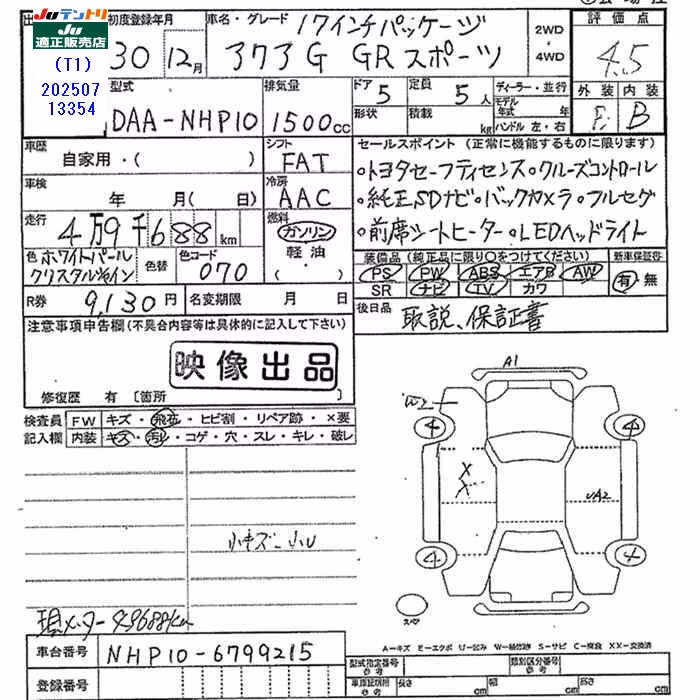 JU JUテントリ
JU 適正販売店
(T1)
202507
13354
初度登録年月
30 12月
車名・グレード
17インチパッケージ
アクア G GRスポーツ
2WD ・ 4WD
評価点
4.5
外装 内装
B
型式
DAA-NHP10
排気量
1500cc
ドア 5
形状
定員 5人
積載 kg
ディーラー・並行
モデル年式 年
ハンドル 左・右
車歴
自家用・( )
シフト
FAT
セールスポイント (正常に機能するものに限ります)
・トヨタセーフティセンス・クルーズコントロール
・純正SDナビ・バックカメラ・フルセグ
・前席シートヒーター・LEDヘッドライト
車検
年 月( 日)
冷房
AAC
走行
4万9千688km
燃料
ガソリン
軽油
色 ホワイトパールクリスタルシャイン
色替
色コード
070
装備品 (純正品に限り○をつけてください)
PS PW ABS エアB AW
SR ナビ TV カワ
新車保証書
有・無
R券 9,130円
名変期限 月 日
後日品 取説、保証書
注意事項申告欄(不具合内容等は具体的に記入して下さい)
映像出品
修復歴 有 〔箇所
検査員記入欄
FW キズ・飛石・ヒビ割・リペア跡・×要
内装 キズ・汚れ・コゲ・穴・スレ・キレ・破レ
A1
W2
4 4
X
X
UA2
4 4
スペア
小キズ 小U
現メーター49688km
A-キズ E-エクボ U-凹み W-補修跡 S-サビ C-腐食 XX-交換済
車台番号 NHP10-6799215
登録番号
型式指定番号 参考
類別区分番号 参考
車検証明所 参考
長さ cm 幅 cm 高さ cm